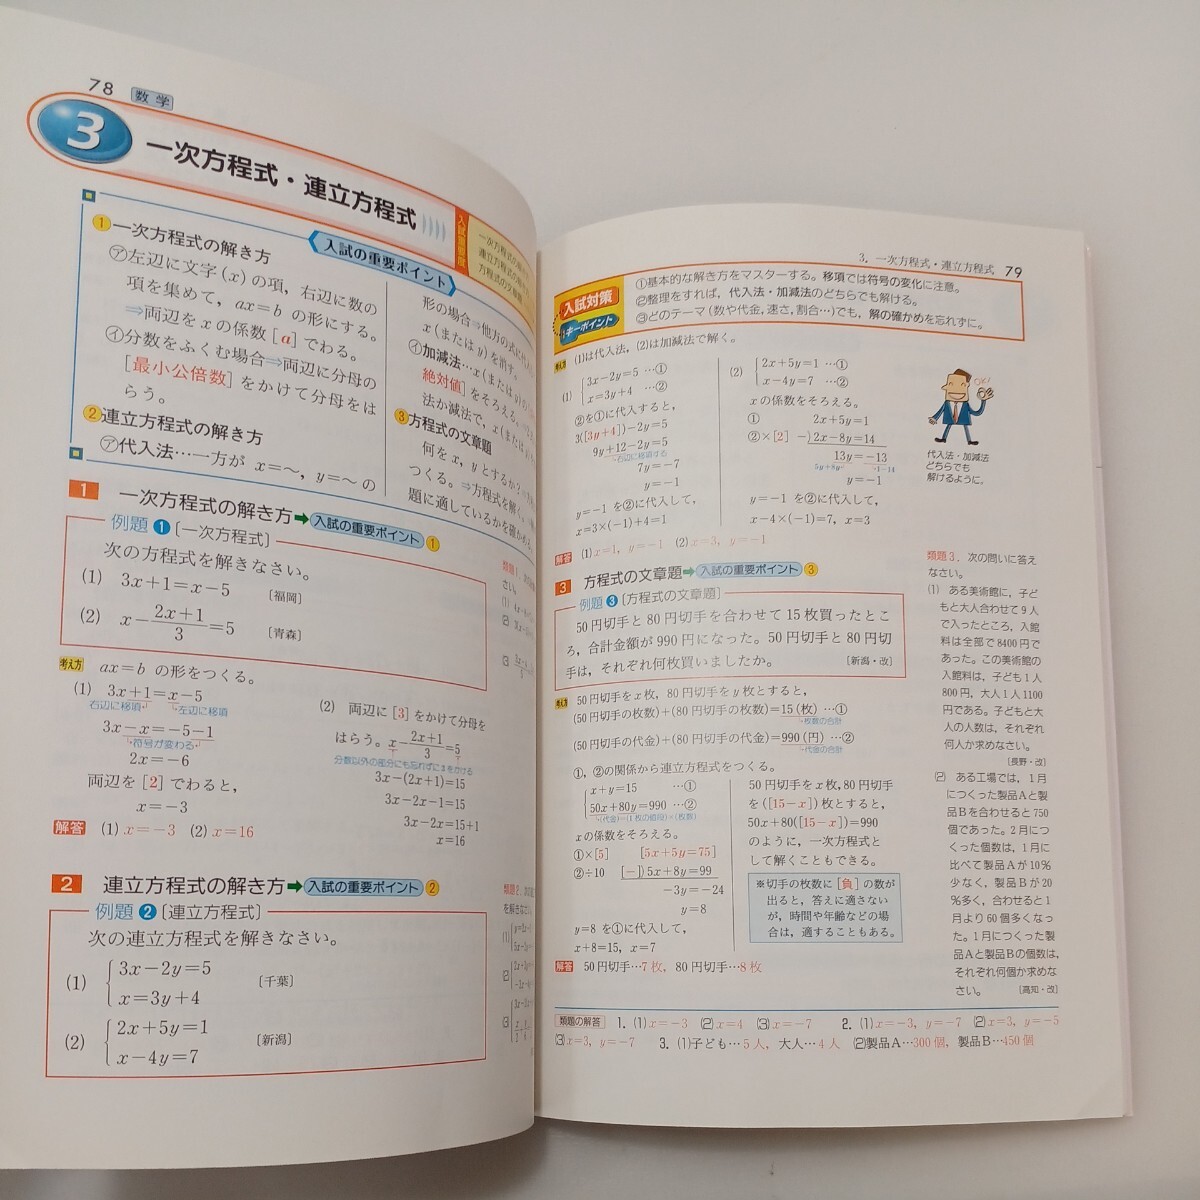 78 数学
3 一次方程式・連立方程式
入試重要度
入試の重要ポイント
①一次方程式の解き方
㋐左辺に文字(x)の項，右辺に数の
項を集めて，ax=b の形にする。
⇒両辺を x の係数[a]でわる。
㋑分数をふくむ場合⇒両辺に分母の
[最小公倍数]をかけて分母をは
らう。
②連立方程式の解き方
㋐代入法…一方が x=〜，y=〜 の
形の場合⇒他方の式に代入
x(または y)を消す。
㋑加減法…x(または y)の
絶対値]をそろえる。
法か減法で，x(または
③方程式の文章題
何を x，y とするか
つくる。⇒方程式を解く。
題に適しているかを確かめる。
1 一次方程式の解き方➡入試の重要ポイント①
例題❶〔一次方程式〕
次の方程式を解きなさい。
(1) 3x+1=x−5 〔福岡〕
(2) x−(2x+1)/3=5 〔青森〕
考え方 ax=b の形をつくる。
(1) 3x+1=x−5
右辺に移項 左辺に移項
3x−x=−5−1
符号が変わる
2x=−6
両辺を[2]でわると，
x=−3
(2) 両辺に[3]をかけて分母を
はらう。x−(2x+1)/3=5
分数以外の部分にも忘れずに3をかける
3x−(2x+1)=15
3x−2x−1=15
3x−2x=15+1
x=16
解答 (1) x=−3 (2) x=16
2 連立方程式の解き方➡入試の重要ポイント②
例題❷〔連立方程式〕
次の連立方程式を解きなさい。
(1) {3x−2y=5
x=3y+4 〔千葉〕
(2) {2x+5y=1
x−4y=7 〔新潟〕
3. 一次方程式・連立方程式 79
入試対策
キーポイント
①基本的な解き方をマスターする。移項では符号の変化に注意。
②整理をすれば，代入法・加減法のどちらでも解ける。
③どのテーマ(数や代金，速さ，割合…)でも，解の確かめを忘れずに。
考え方 (1)は代入法，(2)は加減法で解く。
(1) {3x−2y=5 …①
x=3y+4 …②
②を①に代入すると，
3([3y+4])−2y=5
9y+12−2y=5
右辺に移項する
7y=−7
y=−1
y=−1 を②に代入して，
x=3×(−1)+4=1
(2) {2x+5y=1 …①
x−4y=7 …②
x の係数をそろえる。
① 2x+5y=1
②×[2] −)2x−8y=14
13y=−13
5y+8y 1−14
y=−1
y=−1 を②に代入して，
x−4×(−1)=7，x=3
OK!
代入法・加減法
どちらでも
解けるように。
解答 (1) x=1，y=−1 (2) x=3，y=−1
3 方程式の文章題➡入試の重要ポイント③
例題❸〔方程式の文章題〕
50円切手と80円切手を合わせて15枚買ったとこ
ろ，合計金額が990円になった。50円切手と80円切
手は，それぞれ何枚買いましたか。 〔新潟・改〕
考え方 50円切手を x 枚，80円切手を y 枚とすると，
(50円切手の枚数)+(80円切手の枚数)=15(枚) …①
枚数の合計
(50円切手の代金)+(80円切手の代金)=990(円) …②
代金の合計
①，②の関係から連立方程式をつくる。
{x+y=15 …①
50x+80y=990 …②
(代金)=(1枚の値段)×(枚数)
x の係数をそろえる。
①×[5] [5x+5y=75]
②÷10 [−])5x+8y=99
−3y=−24
y=8
y=8 を①に代入して，
x+8=15，x=7
50円切手を x 枚，80円切手
を([15−x])枚とすると，
50x+80([15−x])=990
のように，一次方程式と
して解くこともできる。
※切手の枚数に[負]の数が
出ると，答えに適さない
が，時間や年齢などの場
合は，適することもある。
解答 50円切手…7枚，80円切手…8枚
類題3．次の問いに答え
なさい。
(1) ある美術館に，子ど
もと大人合わせて9人
で入ったところ，入館
料は全部で8400円で
あった。この美術館の
入館料は，子ども1人
800円，大人1人1100
円である。子どもと大
人の人数は，それぞれ
何人か求めなさい。
〔長野・改〕
(2) ある工場では，1月
につくった製品Aと製
品Bを合わせると750
個であった。2月につ
くった個数は，1月に
比べて製品Aが10%
少なく，製品Bが20
%多く，合わせると1
月より60個多くなっ
た。1月につくった製
品Aと製品Bの個数は，
それぞれ何個か求めな
さい。 〔高知・改〕
類題の解答 1. (1) x=−3 (2) x=4 (3) x=−7 2. (1) x=−3，y=−7 (2) x=3，y=−5
(3) x=3，y=−7 3. (1)子ども…5人，大人…4人 (2)製品A…300個，製品B…450個